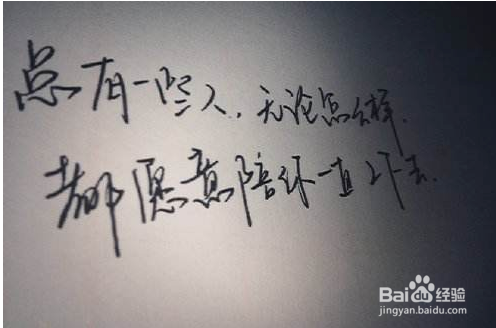 总有一些人，无论怎么样，
都愿意陪你一直下去.
Bai 百度 经验
jingyan.baidu.com